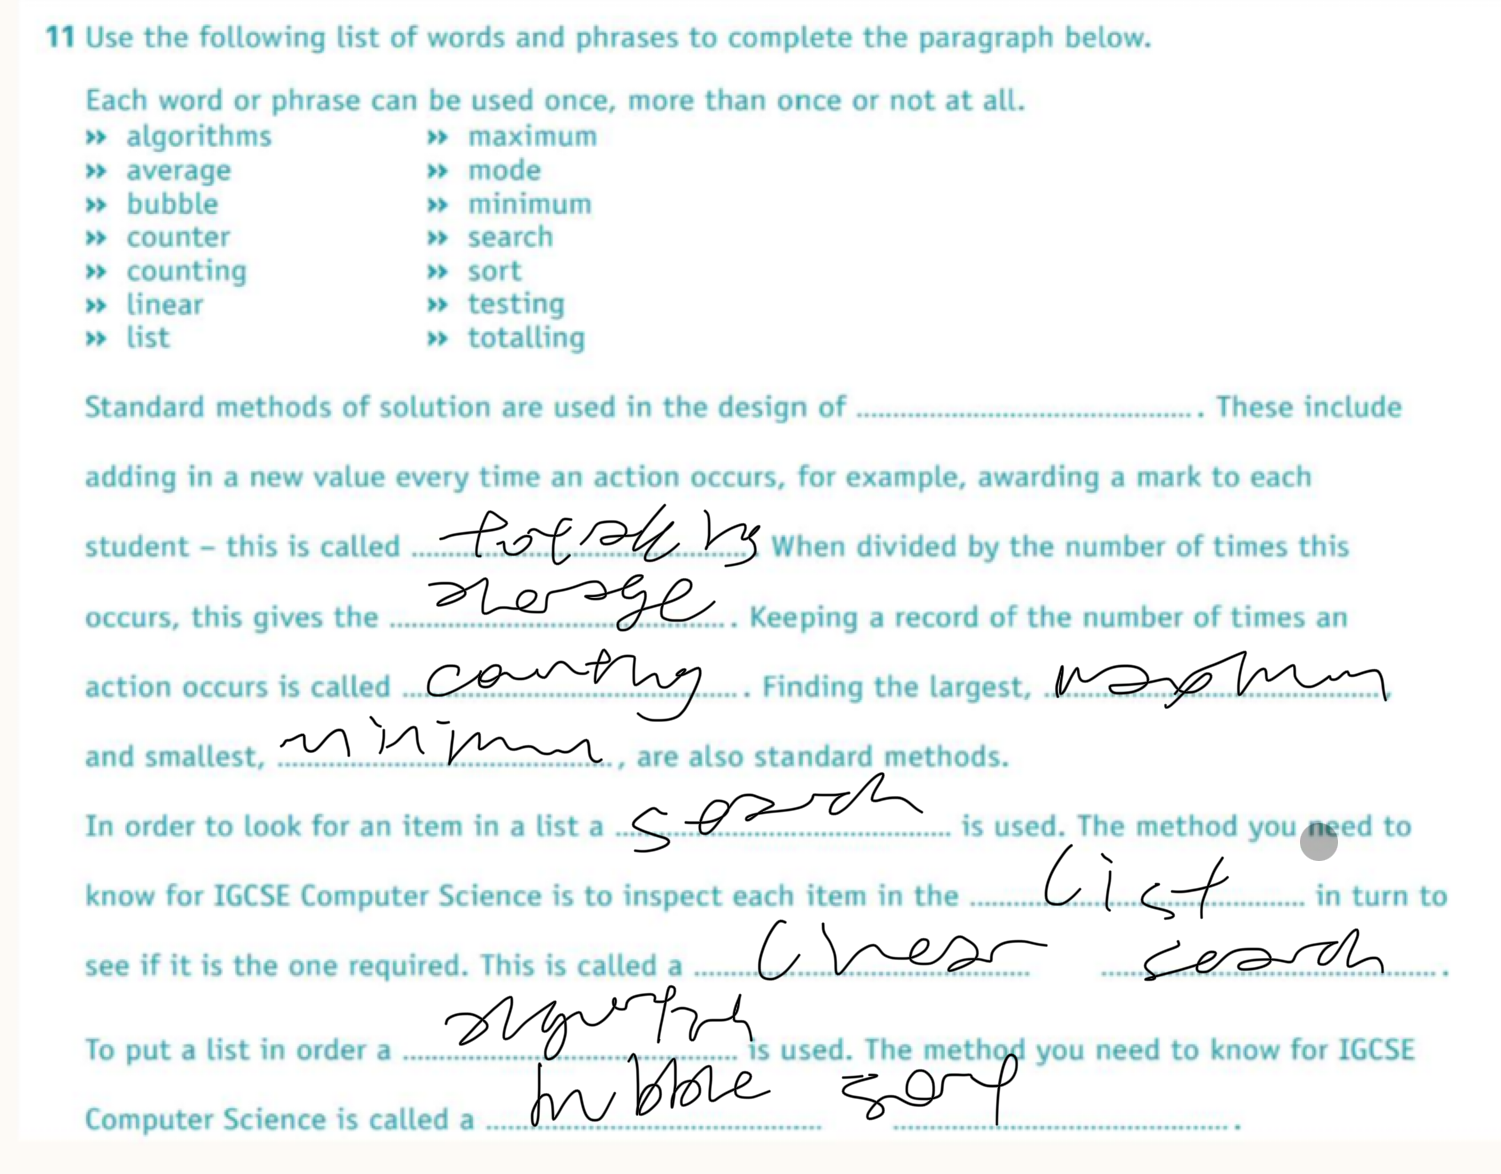 11 Use the following list of words and phrases to complete the paragraph below.
Each word or phrase can be used once, more than once or not at all.
» algorithms » maximum
» average » mode
» bubble » minimum
» counter » search
» counting » sort
» linear » testing
» list » totalling
Standard methods of solution are used in the design of ........................................ . These include
adding in a new value every time an action occurs, for example, awarding a mark to each
student – this is called totalling When divided by the number of times this
occurs, this gives the average . Keeping a record of the number of times an
action occurs is called counting . Finding the largest, maximum ,
and smallest, minimum , are also standard methods.
In order to look for an item in a list a search is used. The method you need to
know for IGCSE Computer Science is to inspect each item in the list in turn to
see if it is the one required. This is called a linear search .
To put a list in order a is used. The method you need to know for IGCSE
Computer Science is called a bubble sort .